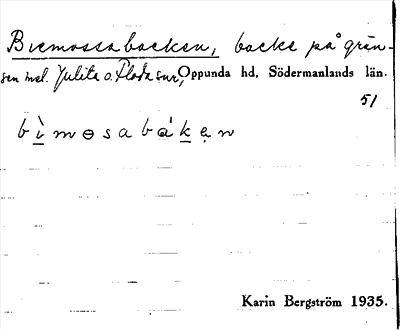 Bremossabacken, backe på grän-
sen mel. Julita o. Floda snr, Oppunda hd, Södermanlands län.
51
bìmosabákęn
Karin Bergström 1935.